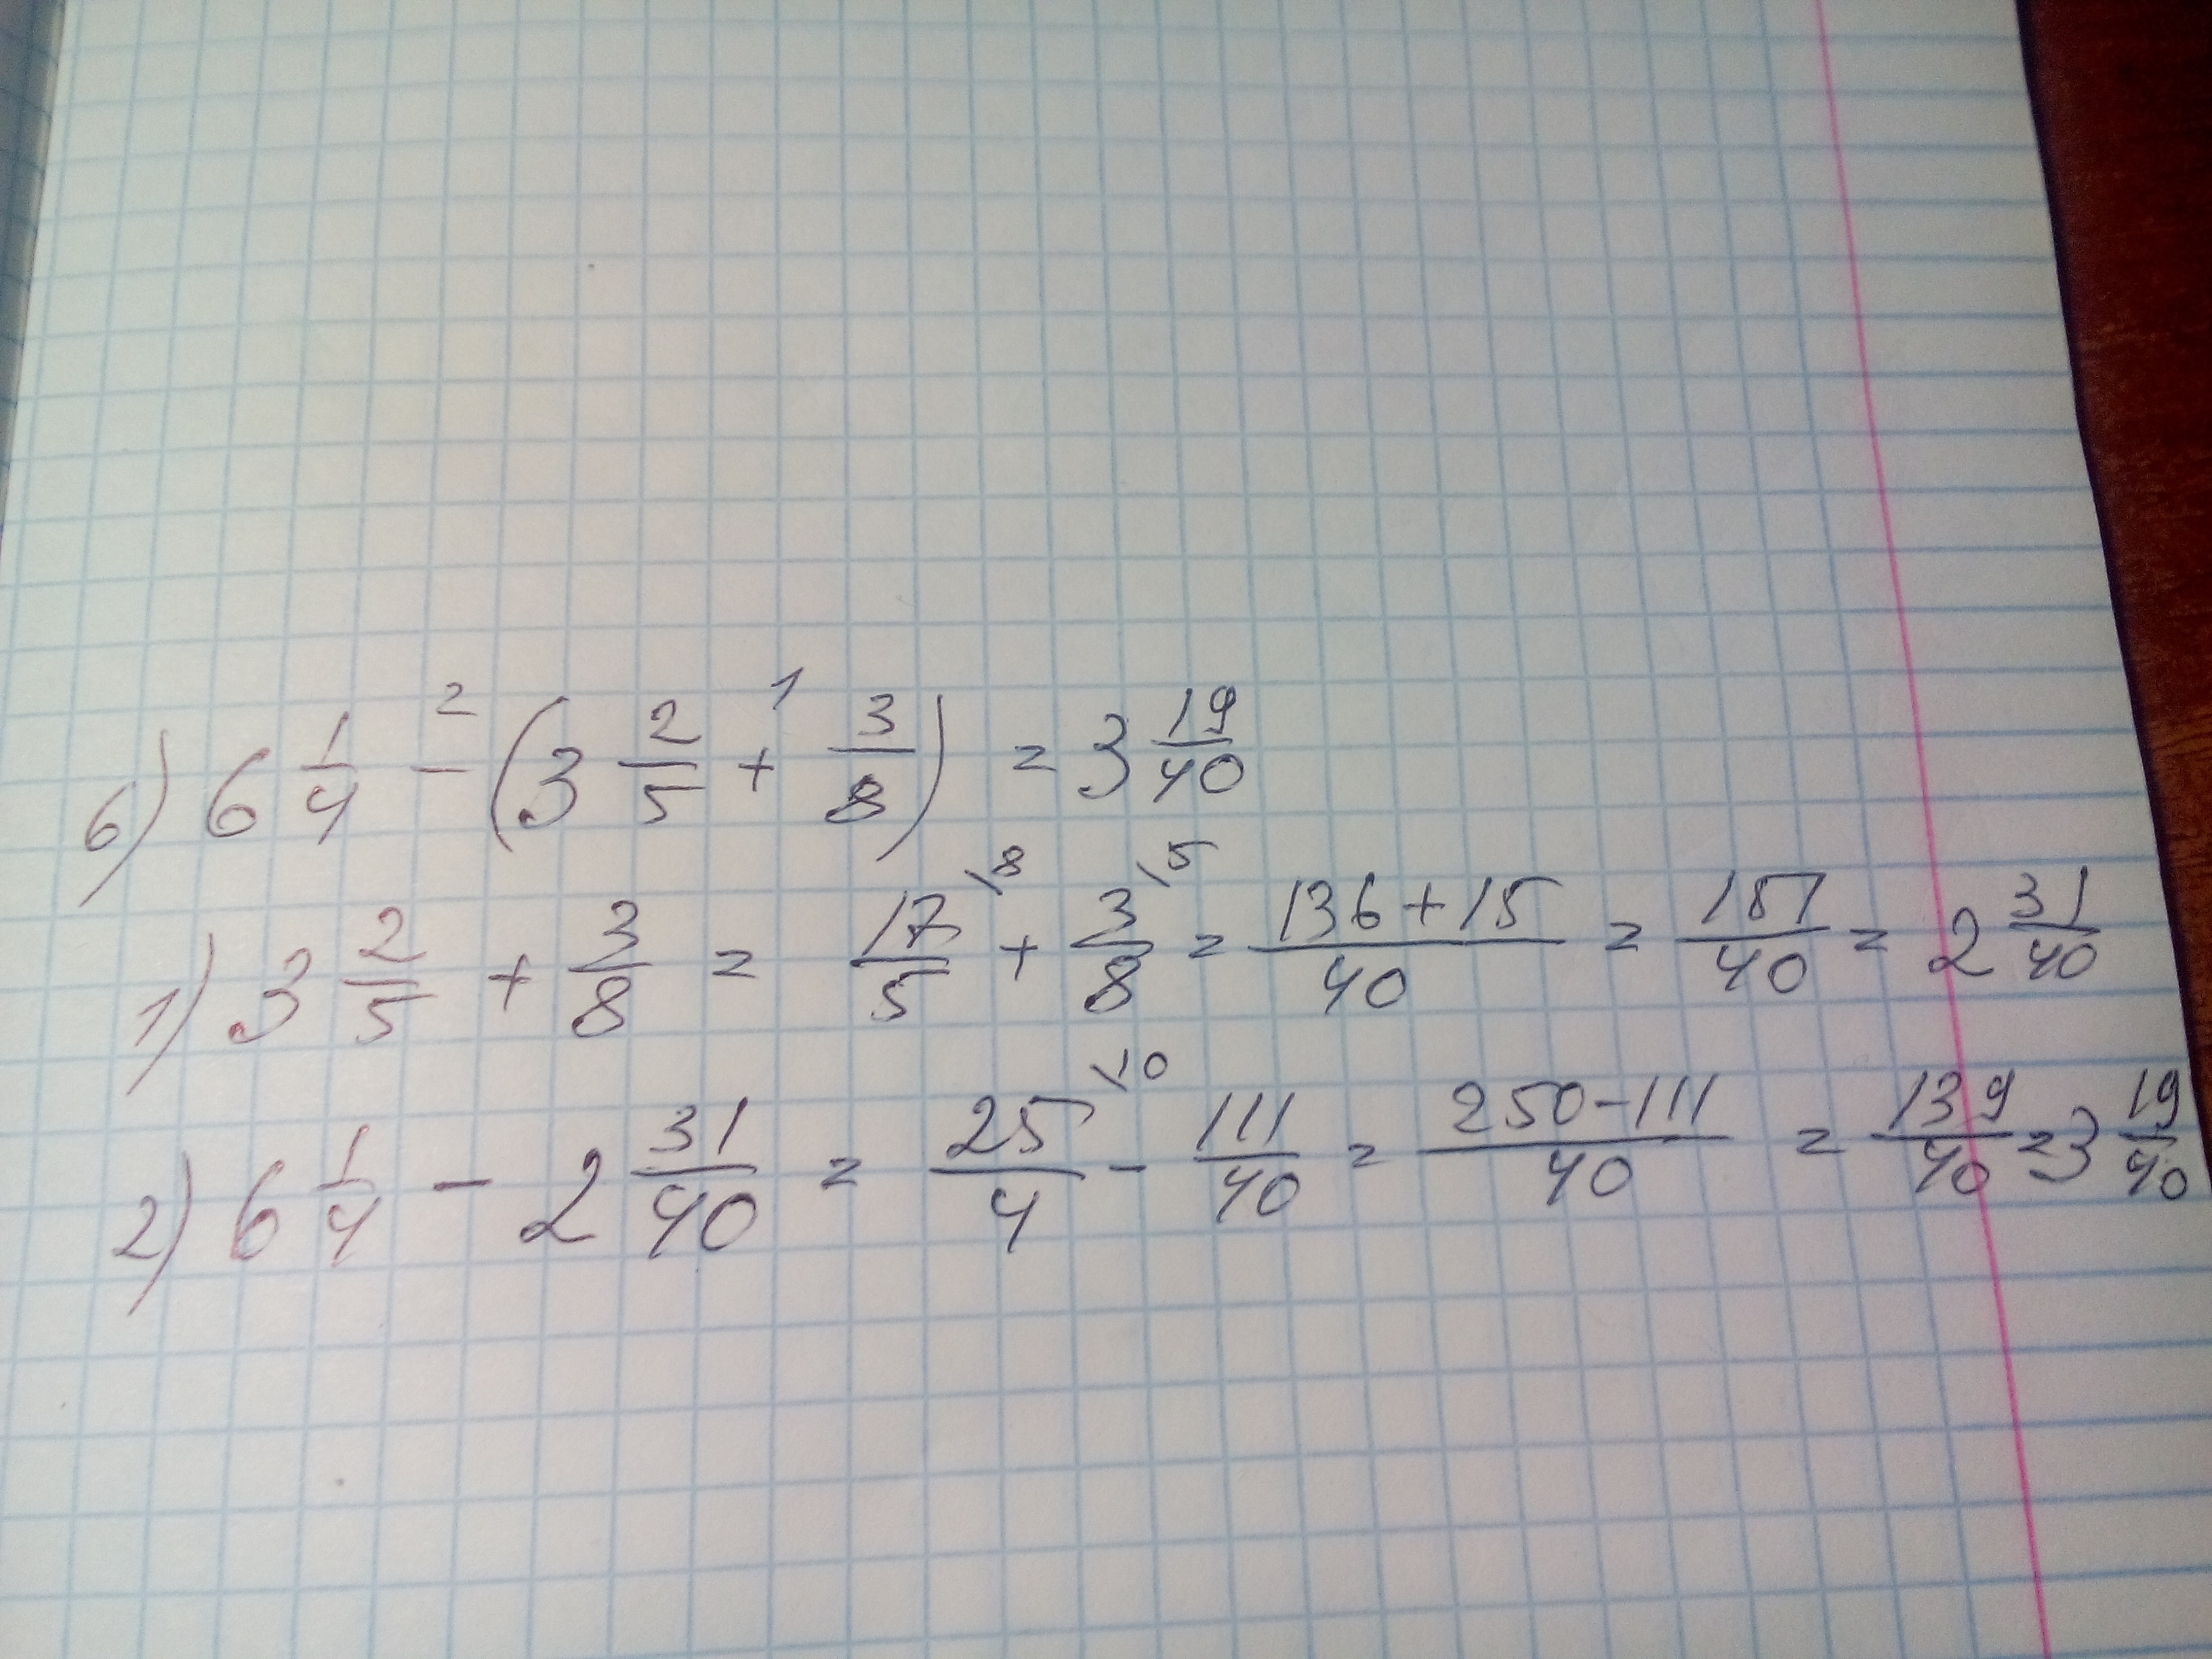 6) 6 1/4 -² (3 2/5 +¹ 3/8) = 3 19/40
1) 3 2/5 + 3/8 = 17/5 \8 + 3/8 \5 = 136+15/40 = 151/40 = 2 31/40
2) 6 1/4 - 2 31/40 = 25/4 \10 - 111/40 = 250-111/40 = 139/40 = 3 19/40